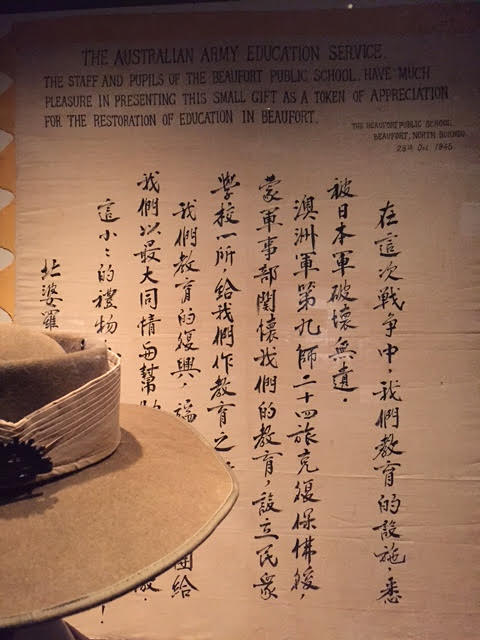 THE AUSTRALIAN ARMY EDUCATION SERVICE.
THE STAFF AND PUPILS OF THE BEAUFORT PUBLIC SCHOOL, HAVE MUCH
PLEASURE IN PRESENTING THIS SMALL GIFT AS A TOKEN OF APPRECIATION
FOR THE RESTORATION OF EDUCATION IN BEAUFORT.
THE BEAUFORT PUBLIC SCHOOL,
BEAUFORT, NORTH BORNEO
25th Oct. 1945
在這次戰爭中，我們教育的設施，悉
被日本軍破壞無遺．
澳洲軍第九師二十四旅克復保佛後，
蒙軍事部関懷我們的教育，設立民衆
學校一所，給我們作教育之
我們教育的復興，端 團給
我們以最大同情与幫
這小々的禮物． !
北婆羅